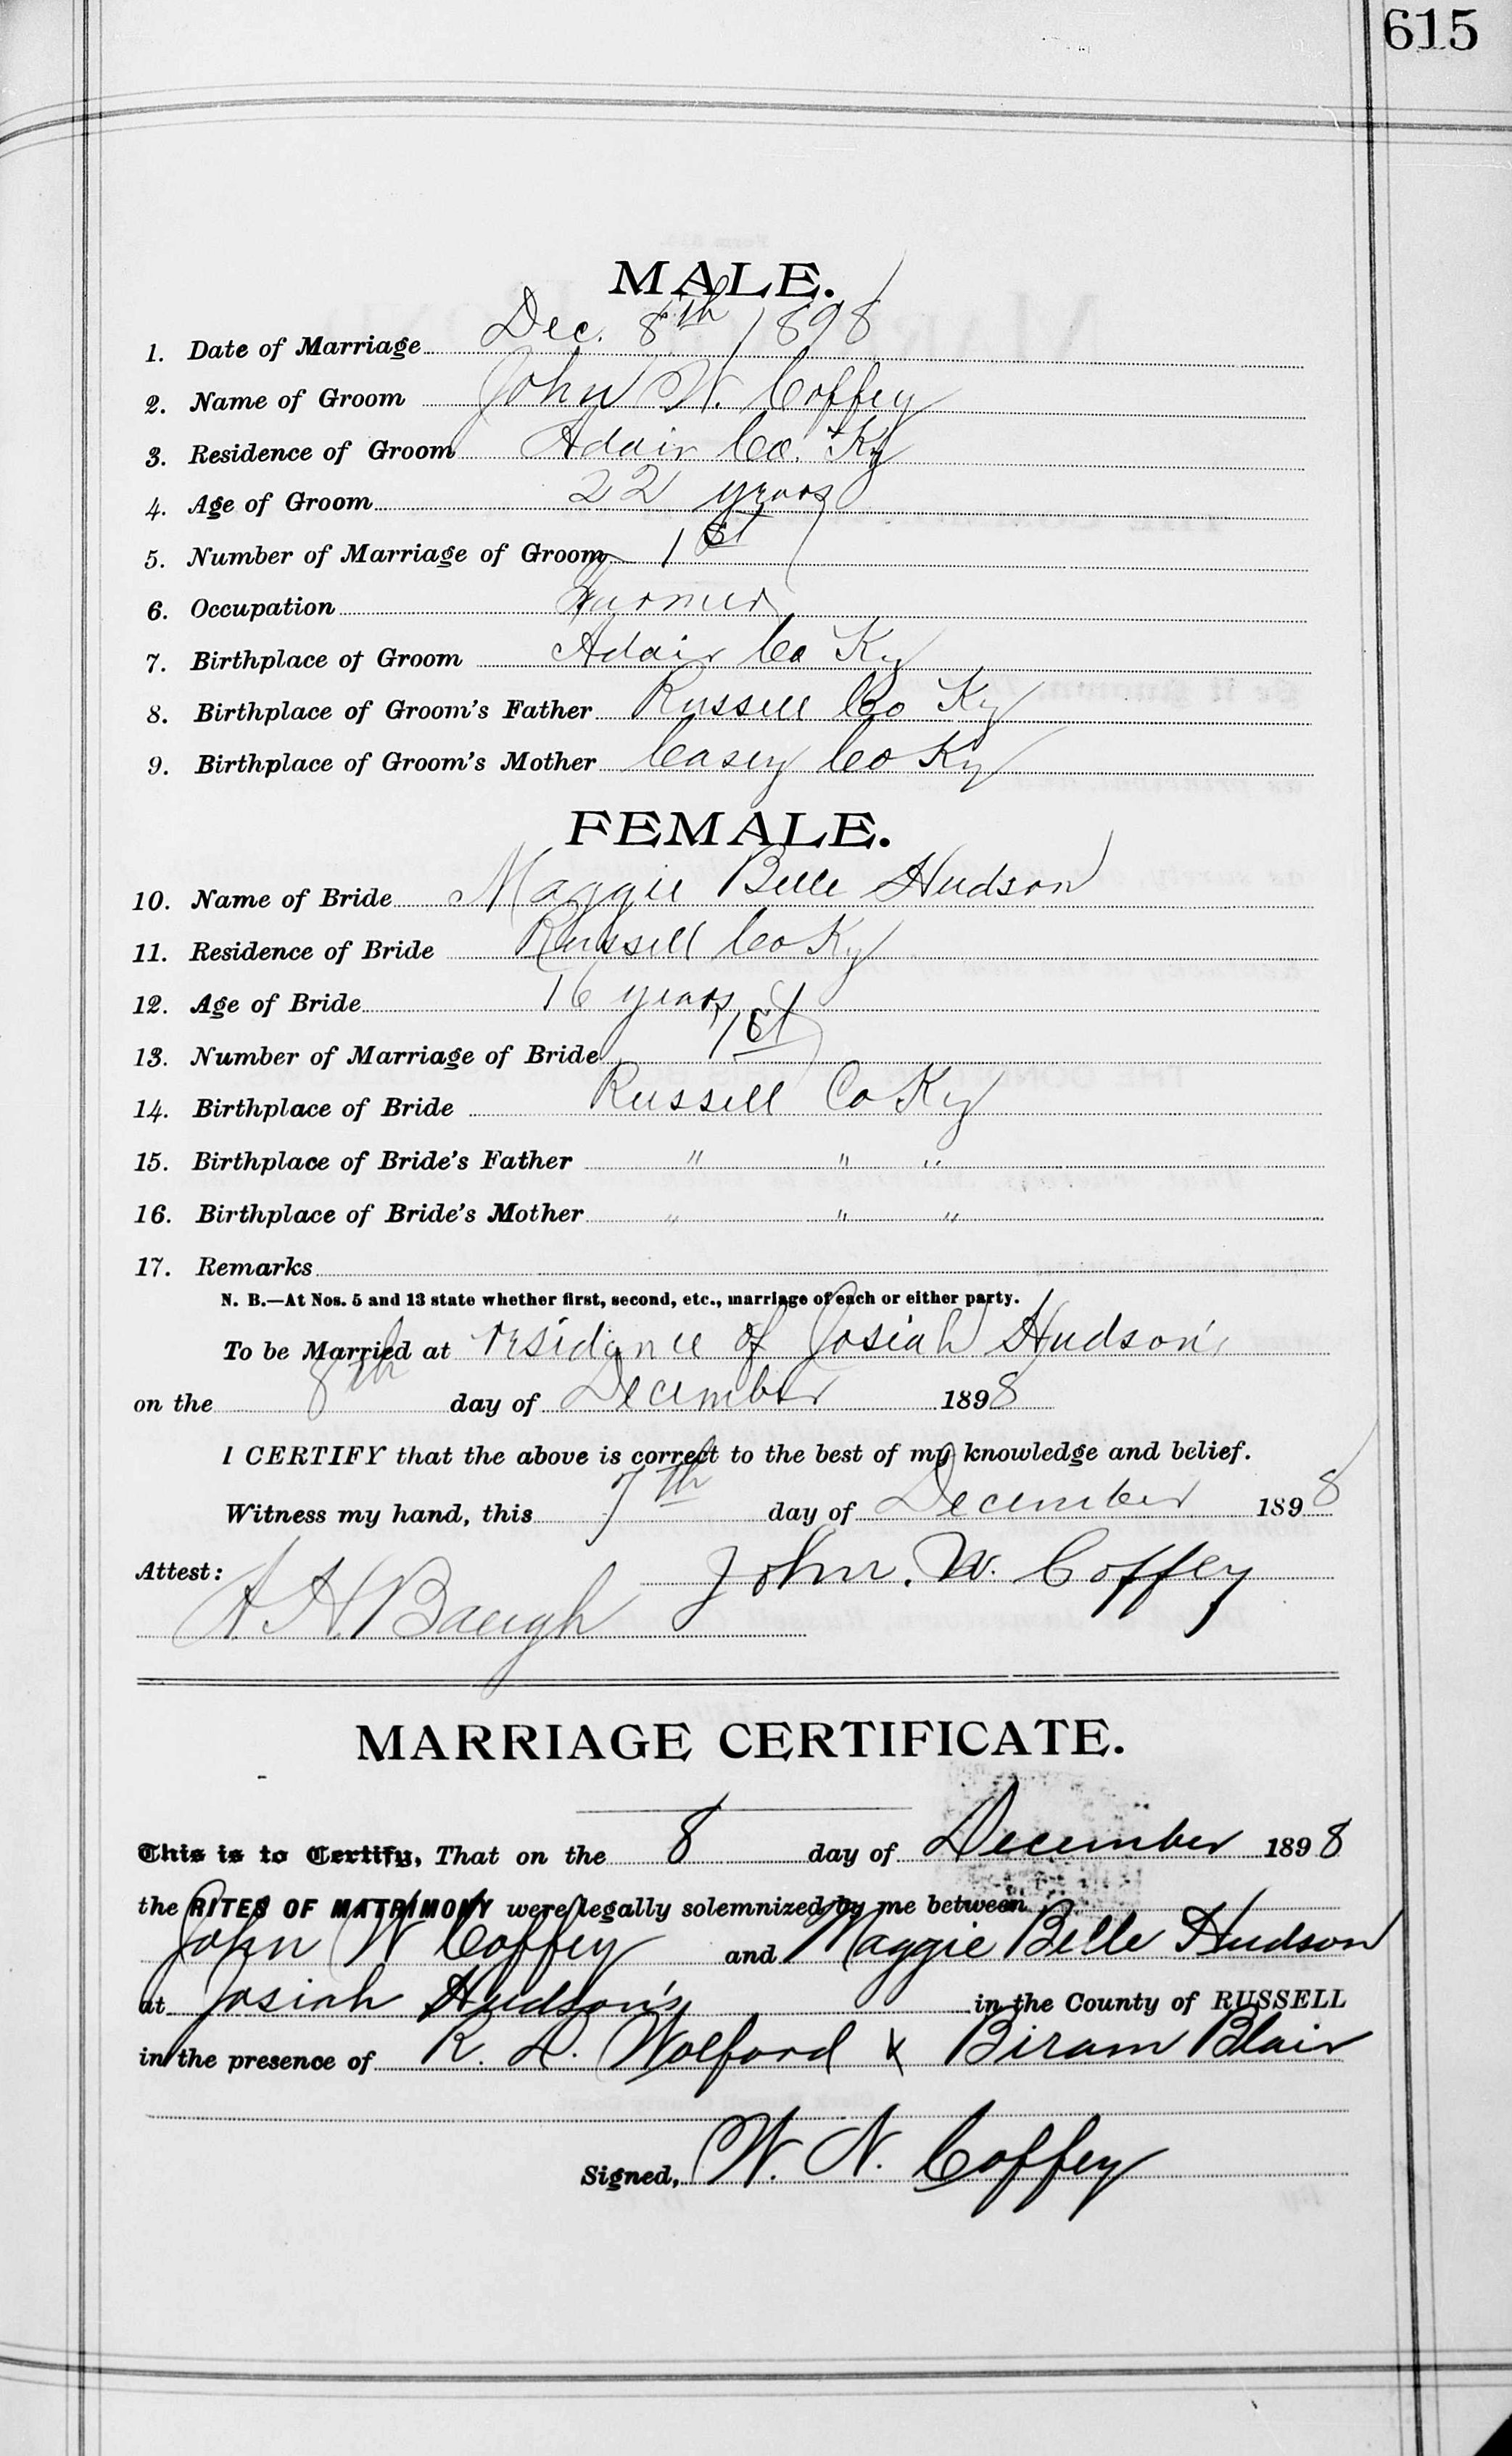 615
MALE.
1. Date of Marriage Dec. 8th 1898
2. Name of Groom John W. Coffey
3. Residence of Groom Adair Co. Ky
4. Age of Groom 22 years
5. Number of Marriage of Groom 1st
6. Occupation Farmer
7. Birthplace of Groom Adair Co Ky
8. Birthplace of Groom's Father Russell Co Ky
9. Birthplace of Groom's Mother Casey Co Ky
FEMALE.
10. Name of Bride Maggie Belle Hudson
11. Residence of Bride Russell Co Ky
12. Age of Bride 16 years
13. Number of Marriage of Bride 1st
14. Birthplace of Bride Russell Co Ky
15. Birthplace of Bride's Father " " "
16. Birthplace of Bride's Mother " " "
17. Remarks
N. B.—At Nos. 5 and 13 state whether first, second, etc., marriage of each or either party.
To be Married at residence of Josiah Hudson's
on the 8th day of December 1898
I CERTIFY that the above is correct to the best of my knowledge and belief.
Witness my hand, this 7th day of December 1898
Attest: John. W. Coffey
A. H. Baugh
MARRIAGE CERTIFICATE.
This is to Certify, That on the 8 day of December 1898
the RITES OF MATRIMONY were legally solemnized by me between
John W Coffey and Maggie Belle Hudson
at Josiah Hudson's in the County of RUSSELL
in the presence of R. L. Wolford & Biram Blair
Signed, W. N. Coffey